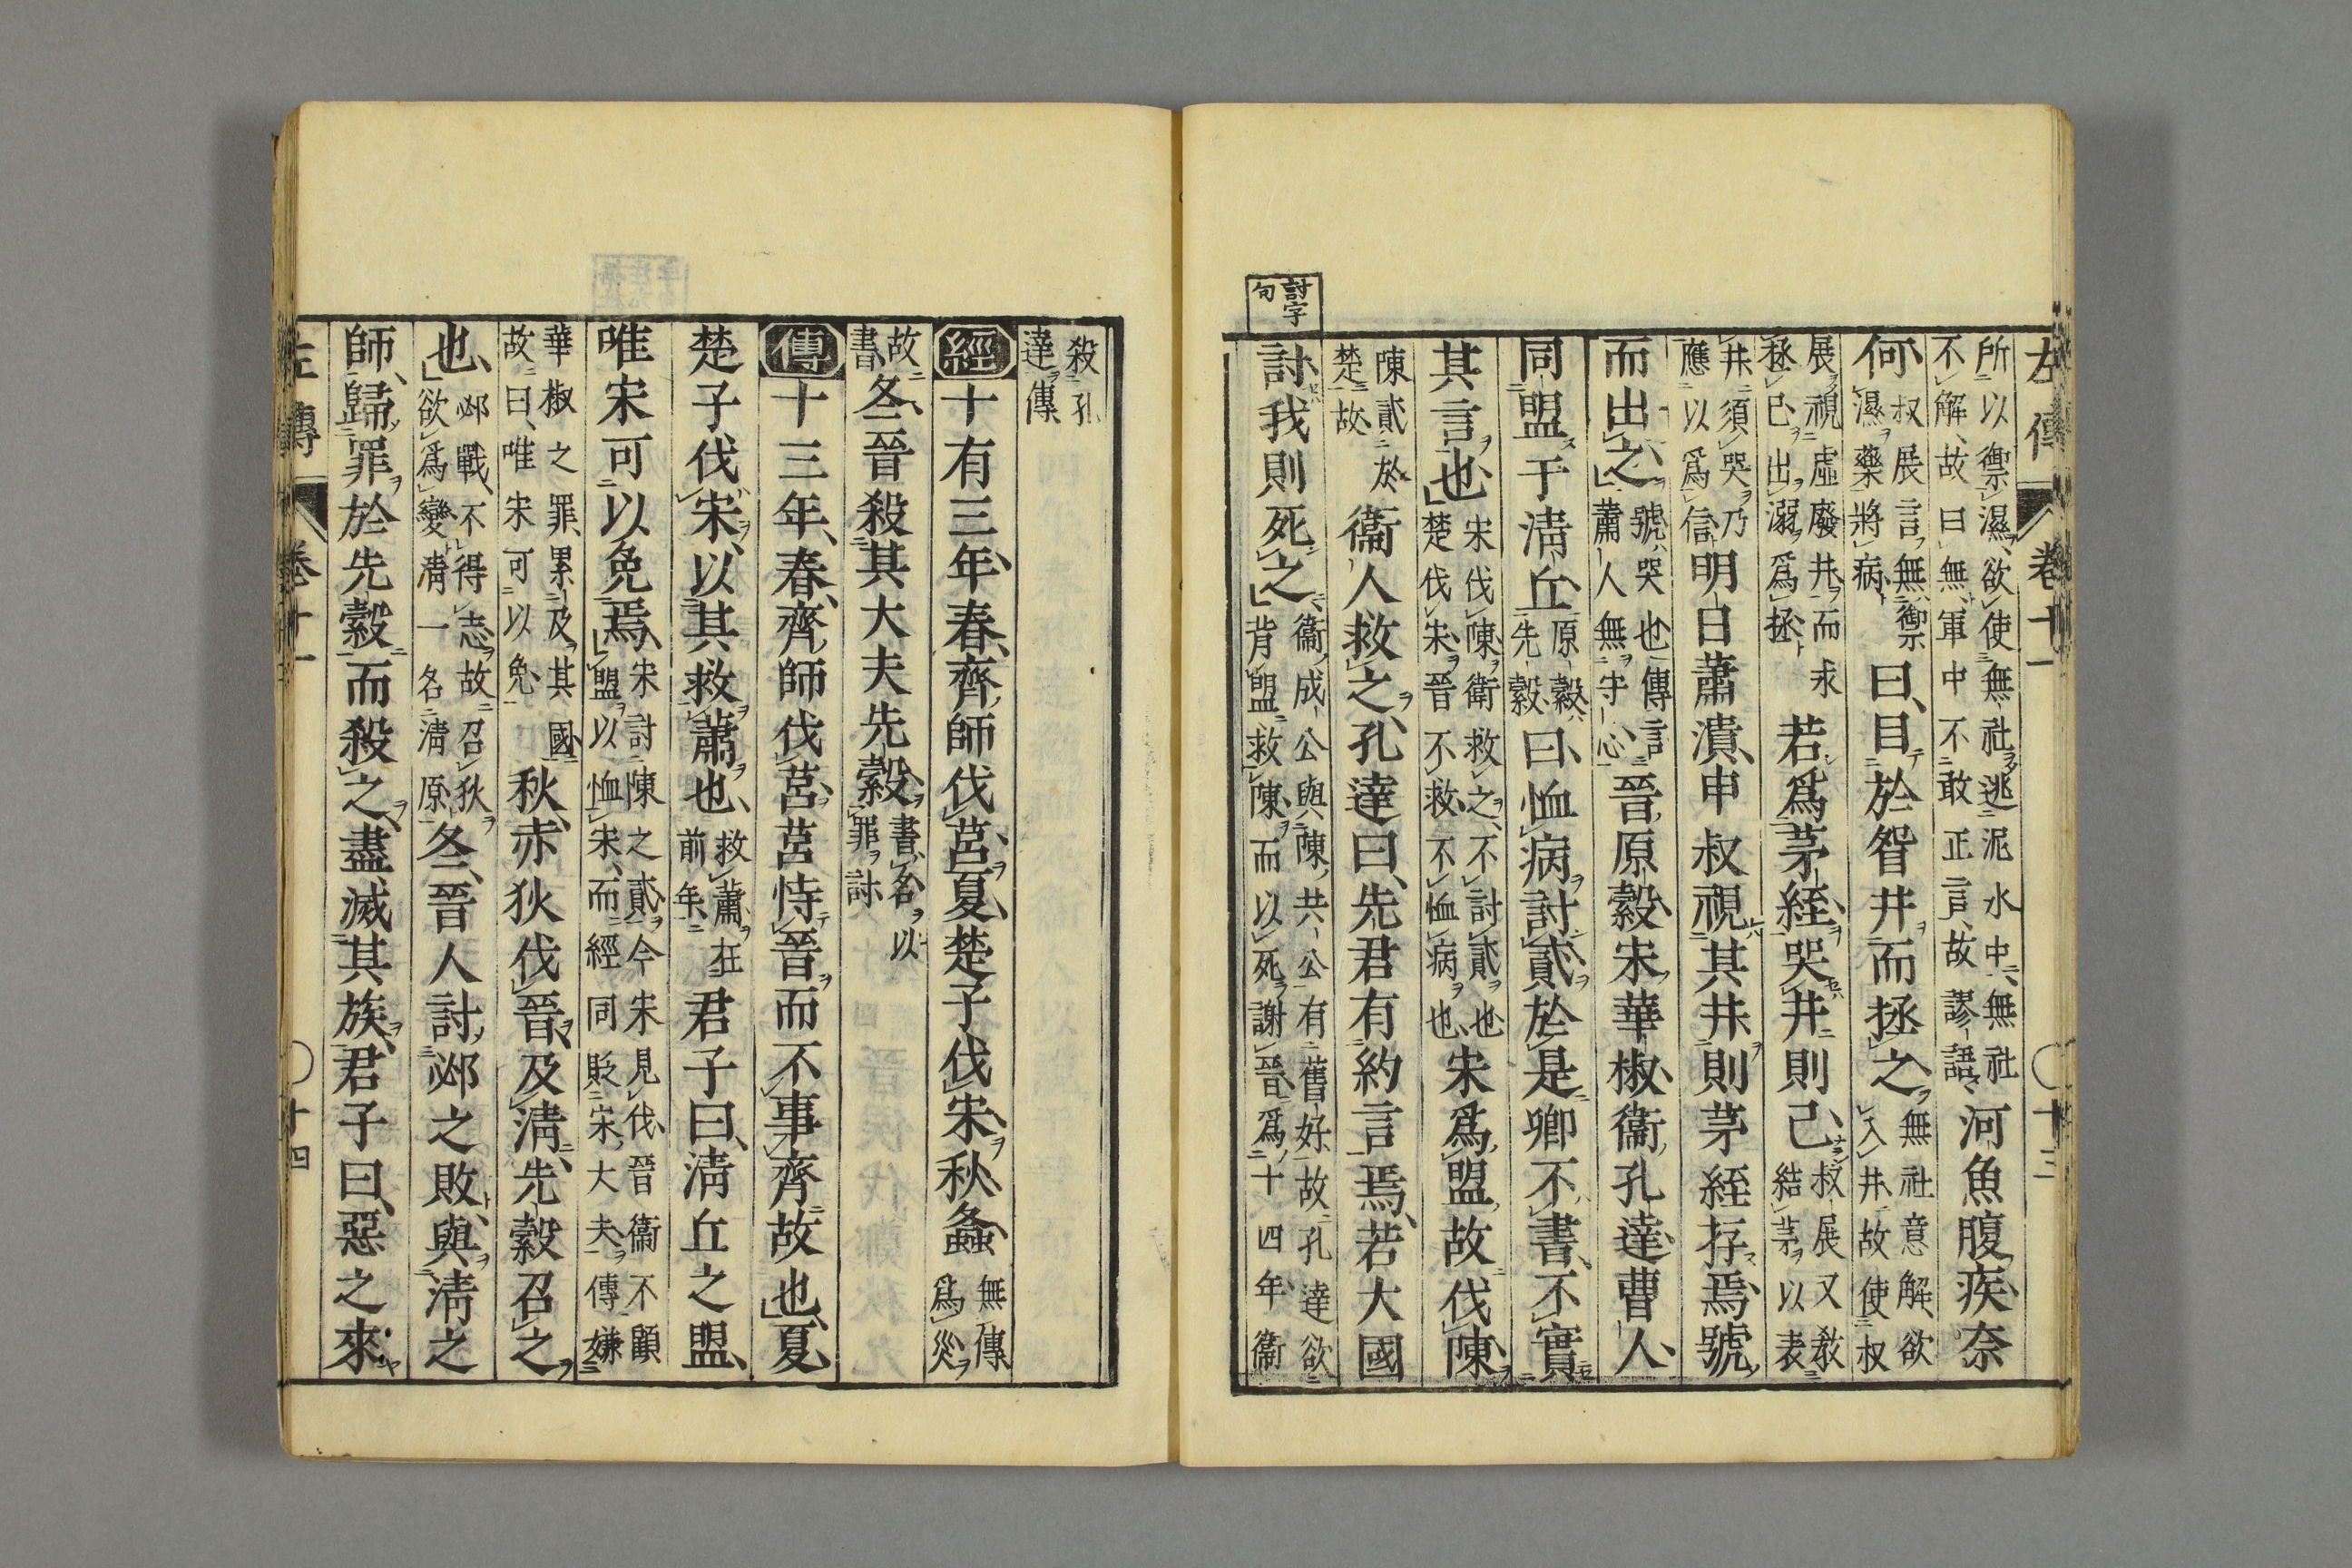 左傳 卷十一 〇十三
所以禦濕欲使無社逃泥水中無社
不解故曰無軍中不敢正言故謬語河魚腹疾奈
何叔展言無禦
濕藥將病曰目於眢井而拯之無社意解欲
入井故使叔
展視虛廢井而求
拯己出溺爲拯若爲茅絰哭井則己叔展又敎
結茅以表
井須哭乃
應以爲信明日蕭潰申叔視其井則茅絰存焉號
而出之號哭也傳言
蕭人無守心晉原縠宋華椒衞孔達曹人
同盟于淸丘原縠
先縠曰恤病討貳於是卿不書不實
其言也宋伐陳衛救之不討貳也
楚伐宋晉不救不恤病也宋爲盟故伐陳
陳貳於
楚故衞人救之孔達曰先君有約言焉若大國
討字
句
討我則死之衞成公與陳共公有舊好故孔達欲
背盟救陳而以死謝晉爲十四年衞
殺孔
達傳
經十有三年春齊師伐莒夏楚子伐宋秋螽無傳
爲災
故
書冬晉殺其大夫先縠書名以
罪討
傳十三年春齊師伐莒莒恃晉而不事齊故也夏
楚子伐宋以其救蕭也救蕭在
前年君子曰淸丘之盟
唯宋可以免焉宋討陳之貳今宋見伐晉衞不顧
盟以恤宋而經同貶宋大夫傳嫌
華椒之罪累及其國
故曰唯宋可以免秋赤狄伐晉及淸先縠召之
也邲戰不得志故召狄
欲爲變淸一名淸原冬晉人討邲之敗與淸之
師歸罪於先縠而殺之盡滅其族君子曰惡之來
左傳 卷十一 〇十四